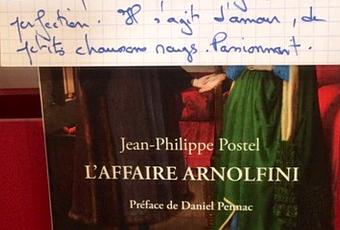 perfection. Il s'agit d'amour, de
petits chaussons rouges. Passionnant.
Jean-Philippe Postel
L'AFFAIRE ARNOLFINI
Préface de Daniel Pennac